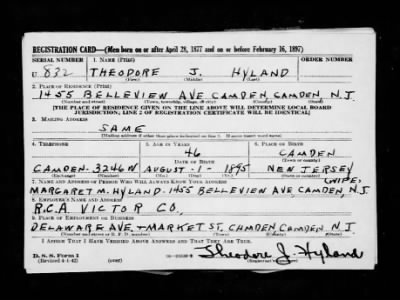 REGISTRATION CARD—(Men born on or after April 28, 1877 and on or before February 16, 1897)
SERIAL NUMBER 1. NAME (Print) ORDER NUMBER
U 832 THEODORE J. HYLAND
(First) (Middle) (Last)
2. PLACE OF RESIDENCE (Print)
1455 BELLEVIEW AVE CAMDEN, CAMDEN, N.J.
(Number and street) (Town, township, village, or city) (County) (State)
[THE PLACE OF RESIDENCE GIVEN ON THE LINE ABOVE WILL DETERMINE LOCAL BOARD
JURISDICTION; LINE 2 OF REGISTRATION CERTIFICATE WILL BE IDENTICAL]
3. MAILING ADDRESS
SAME
[Mailing address if other than place indicated on line 2. If same insert word same]
4. TELEPHONE 5. AGE IN YEARS 6. PLACE OF BIRTH
46 CAMDEN
DATE OF BIRTH (Town or county)
CAMDEN-3246W AUGUST-1-1895 NEW JERSEY
7. NAME AND ADDRESS OF PERSON WHO WILL ALWAYS KNOW YOUR ADDRESS (WIFE)
MARGARET M. HYLAND-1455 BELLEVIEW AVE CAMDEN, N.J.
8. EMPLOYER'S NAME AND ADDRESS
R.C.A. VICTOR CO.
9. PLACE OF EMPLOYMENT OR BUSINESS
DELAWARE AVE, + MARKET ST, CAMDEN, CAMDEN N.J.
(Number and street or R. F. D. number) (Town) (County) (State)
I AFFIRM THAT I HAVE VERIFIED ABOVE ANSWERS AND THAT THEY ARE TRUE.
D. S. S. Form 1
(Revised 4-1-42) (over) Theodore J. Hyland